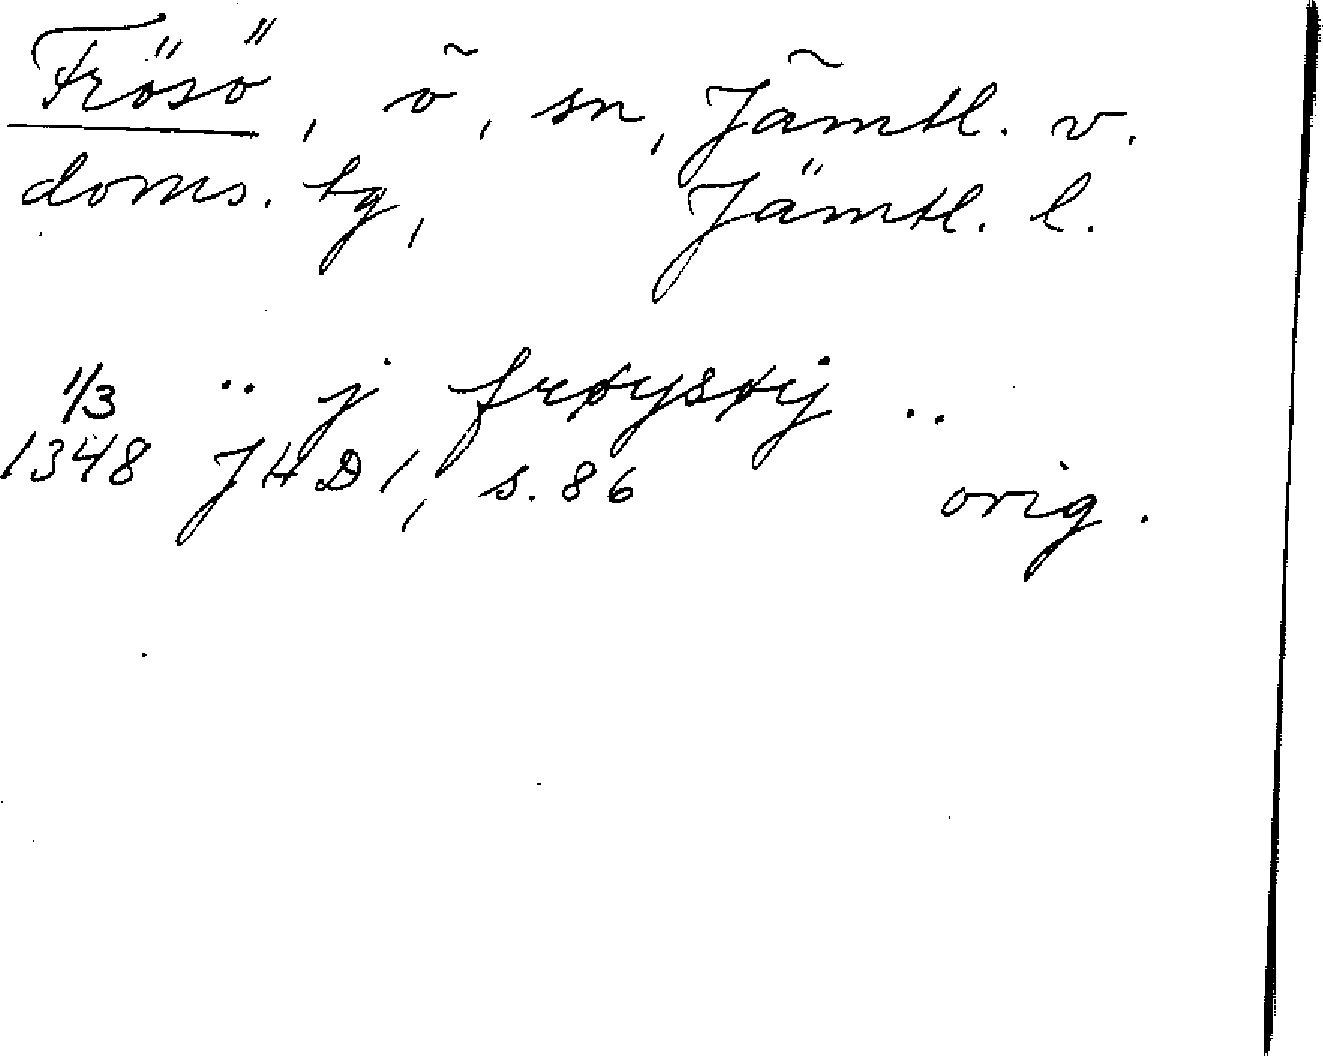 Frösö, ö, sn, Jämtl. v.
doms. tg, Jämtl. l.
1/3 .. j frøysøij ..
1348 JHD 1, s. 86 orig.